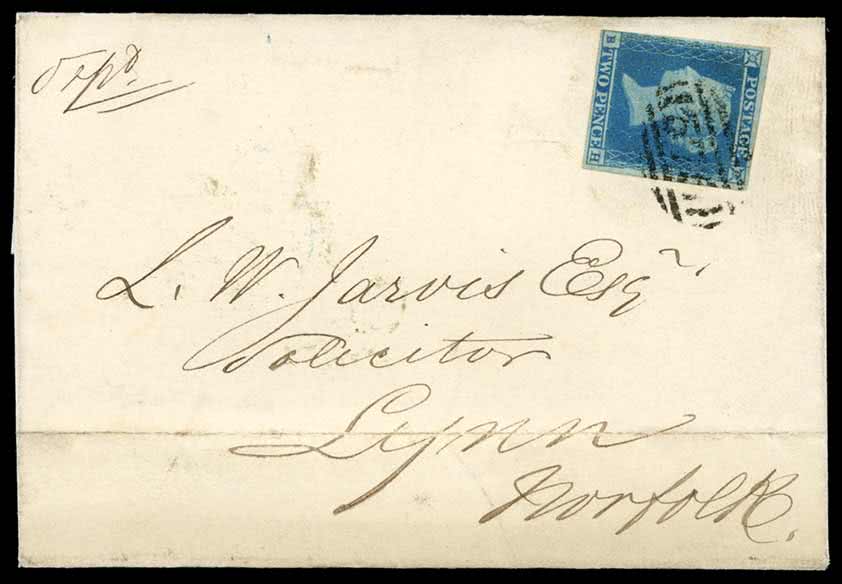 POSTAGE
B TWO PENCE H
L. W. Jarvis Esqr.
Solicitor
Lynn
Norfolk.